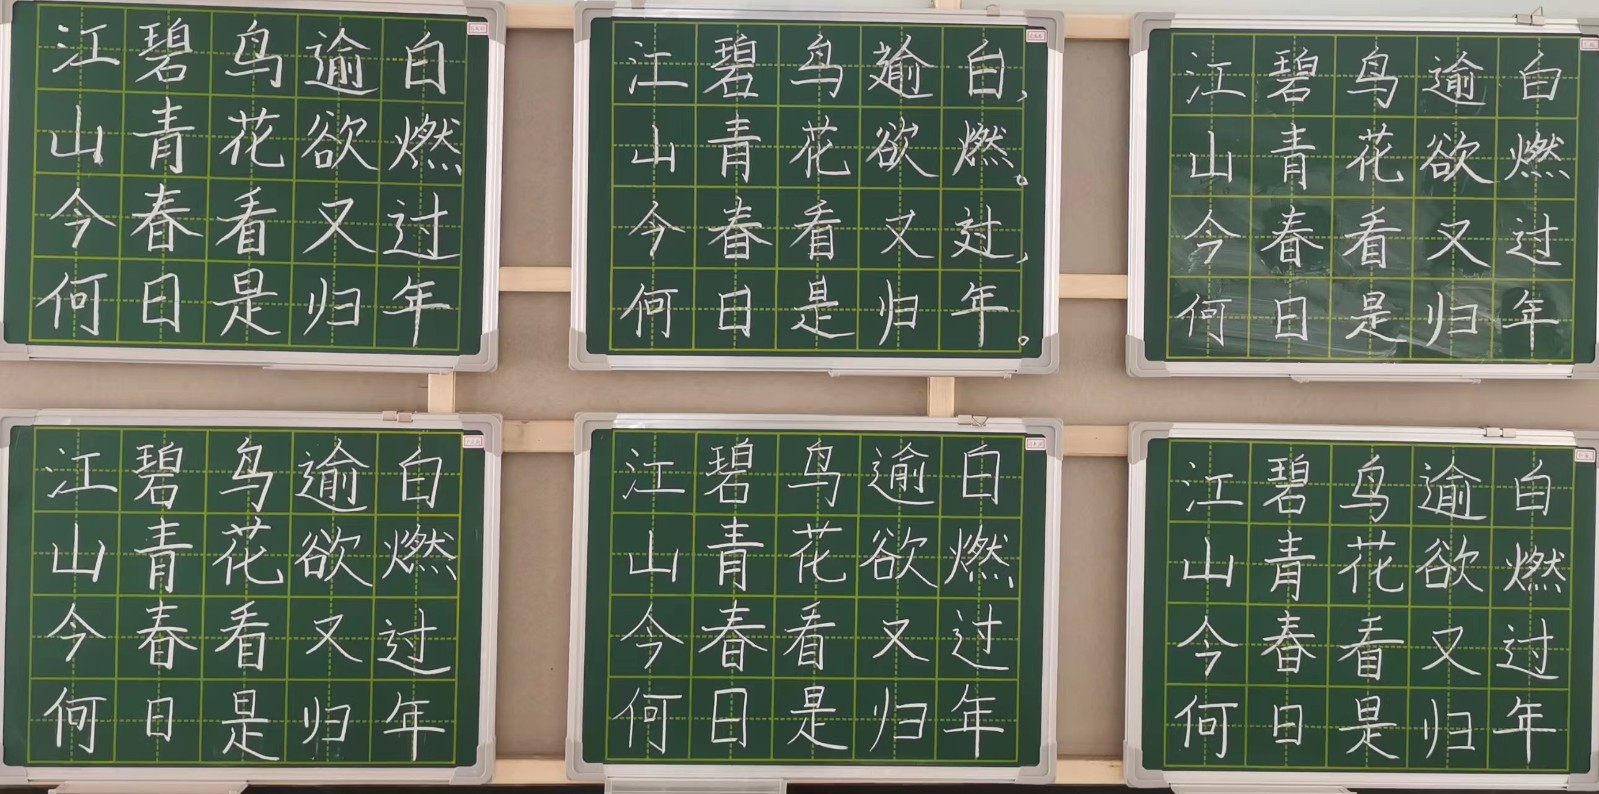 江碧鸟逾白
山青花欲燃
今春看又过
何日是归年
江碧鸟逾白，
山青花欲燃。
今春看又过，
何日是归年。
江碧鸟逾白
山青花欲燃
今春看又过
何日是归年
江碧鸟逾白
山青花欲燃
今春看又过
何日是归年
江碧鸟逾白
山青花欲燃
今春看又过
何日是归年
江碧鸟逾白
山青花欲燃
今春看又过
何日是归年